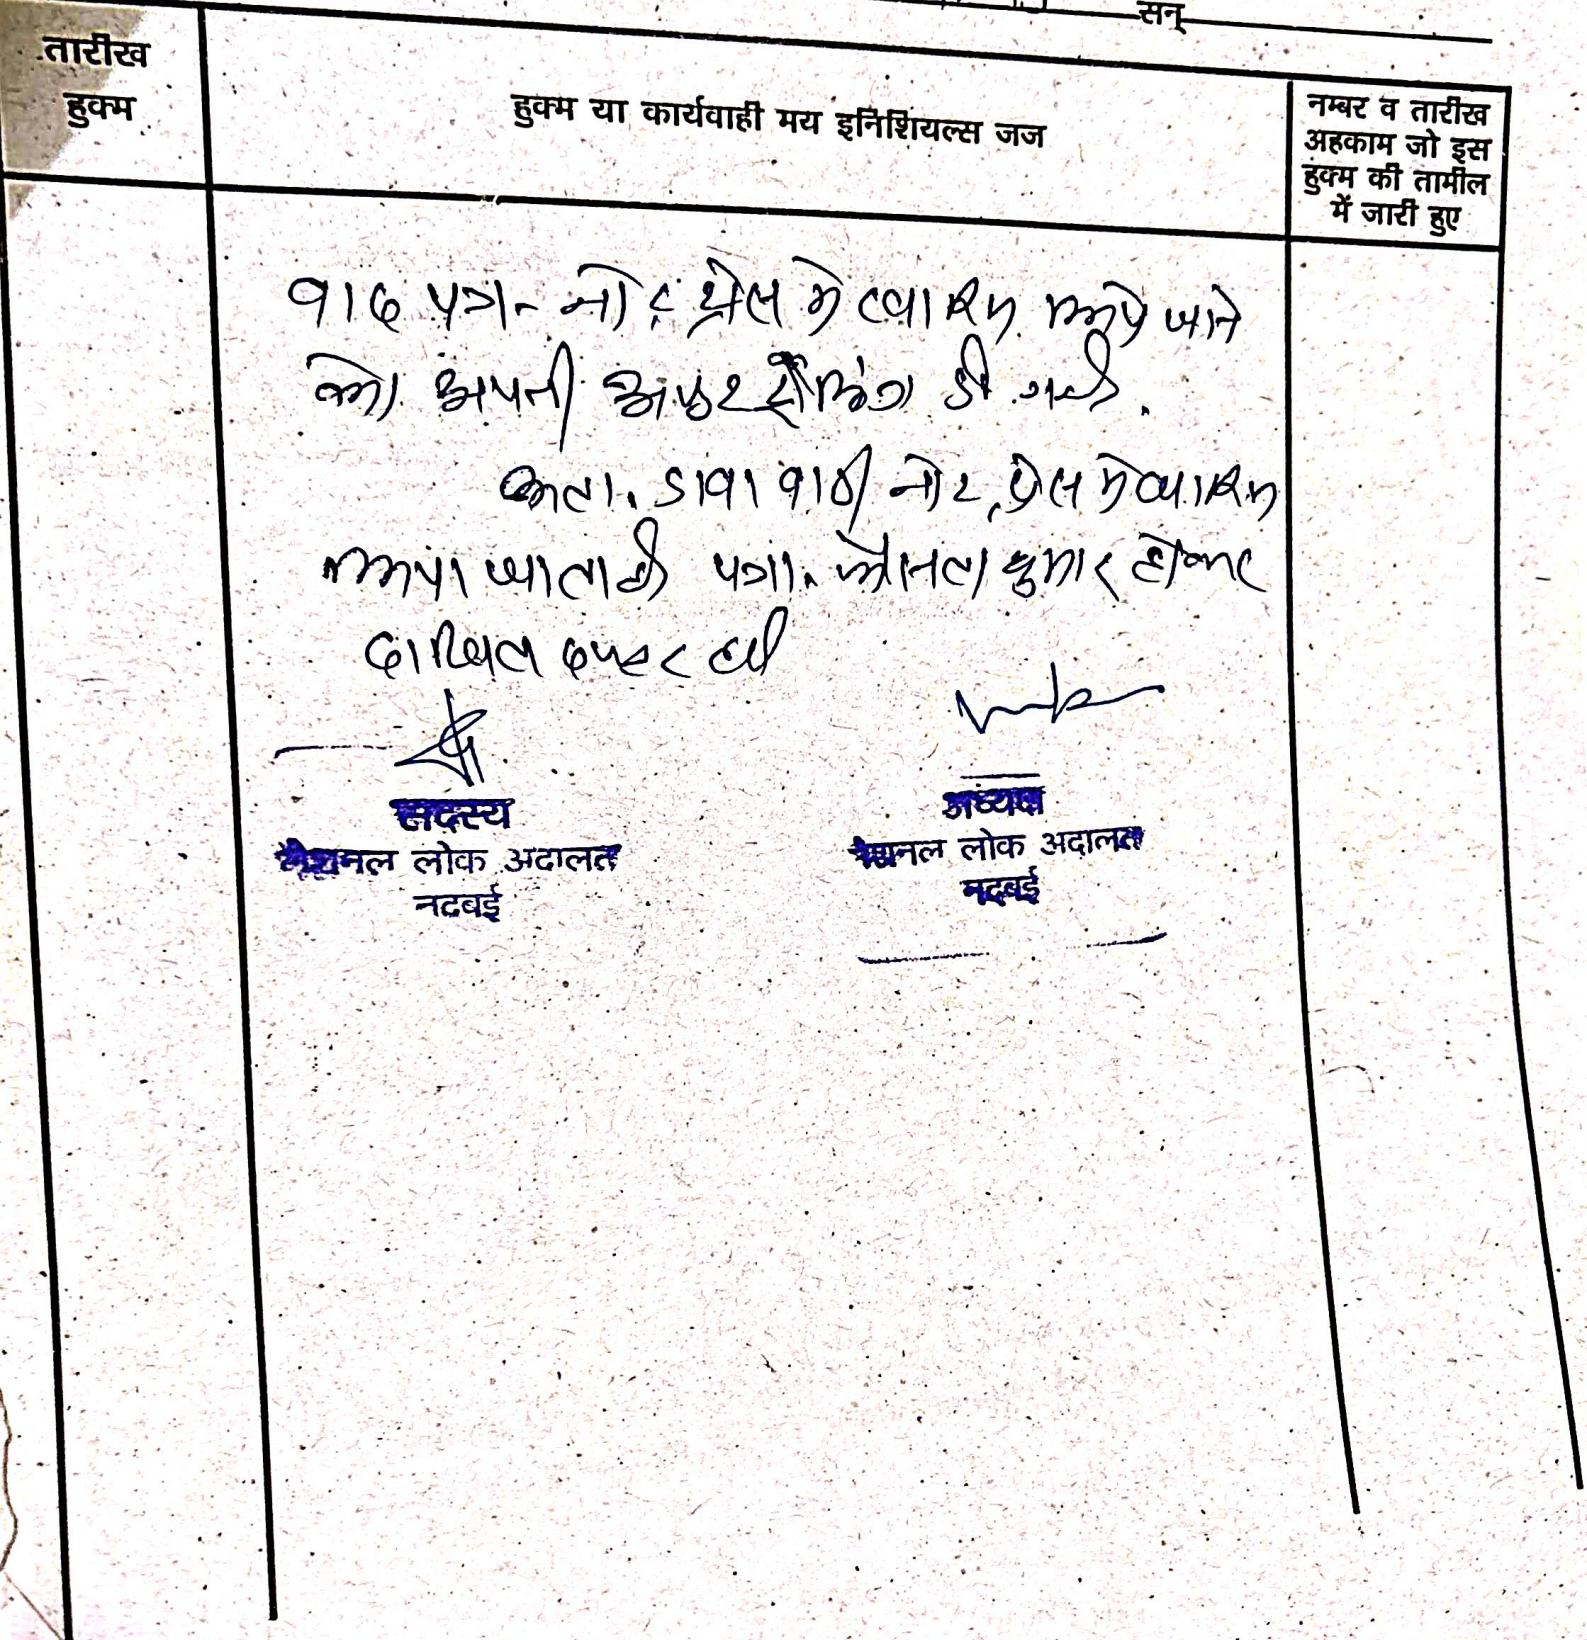 सन्
तारीख
हुक्म
हुक्म या कार्यवाही मय इनिशियल्स जज
नम्बर व तारीख
अहकाम जो इस
हुक्म की तामील
में जारी हुए
वाद पत्र नोट प्रेस मे खारिज किये जाने
की अपनी अण्डरटेकिंग दी गई.
अतः दावा वादी नोट प्रेस मे खारिज
किया जाता है पत्रा. फैसल शुमार होकर
दाखिल दफ्तर हो
सदस्य
नेशनल लोक अदालत
नदबई
अध्यक्ष
नेशनल लोक अदालत
नदबई